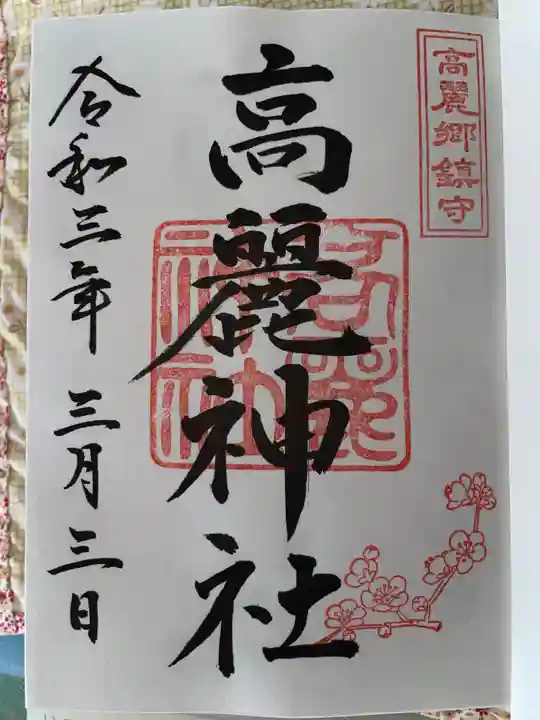 高麗郷鎮守
高麗神社
高麗神社
令和三年 三月三日